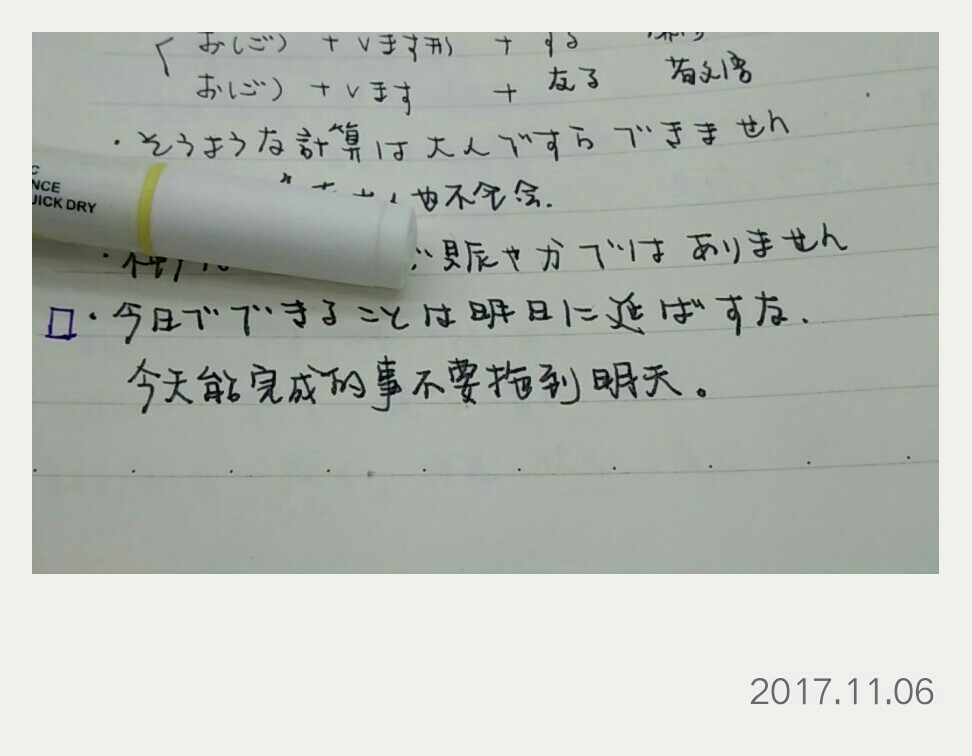 お(ご) + Vます形 + する
お(ご) + Vます + なる 敬语
・そうような計算は大人ですらできません
也不会.
NCE
UICK DRY
賑やかではありません
・今日でできることは明日に延ばすな.
今天能完成的事不要拖到明天。
2017.11.06